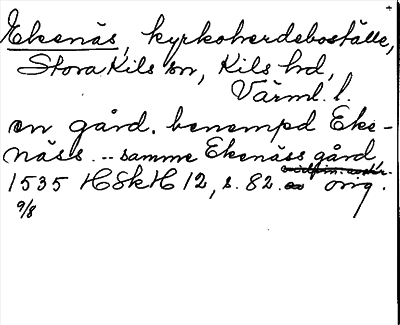 Ekenäs, kyrkoherdeboställe,
Stora Kils sn, Kils hd,
Värml. l.
en gård. benempd Eke-
näss ... samme Ekenäss gård
1535 HSkH 12, s. 82. orig.
9/8